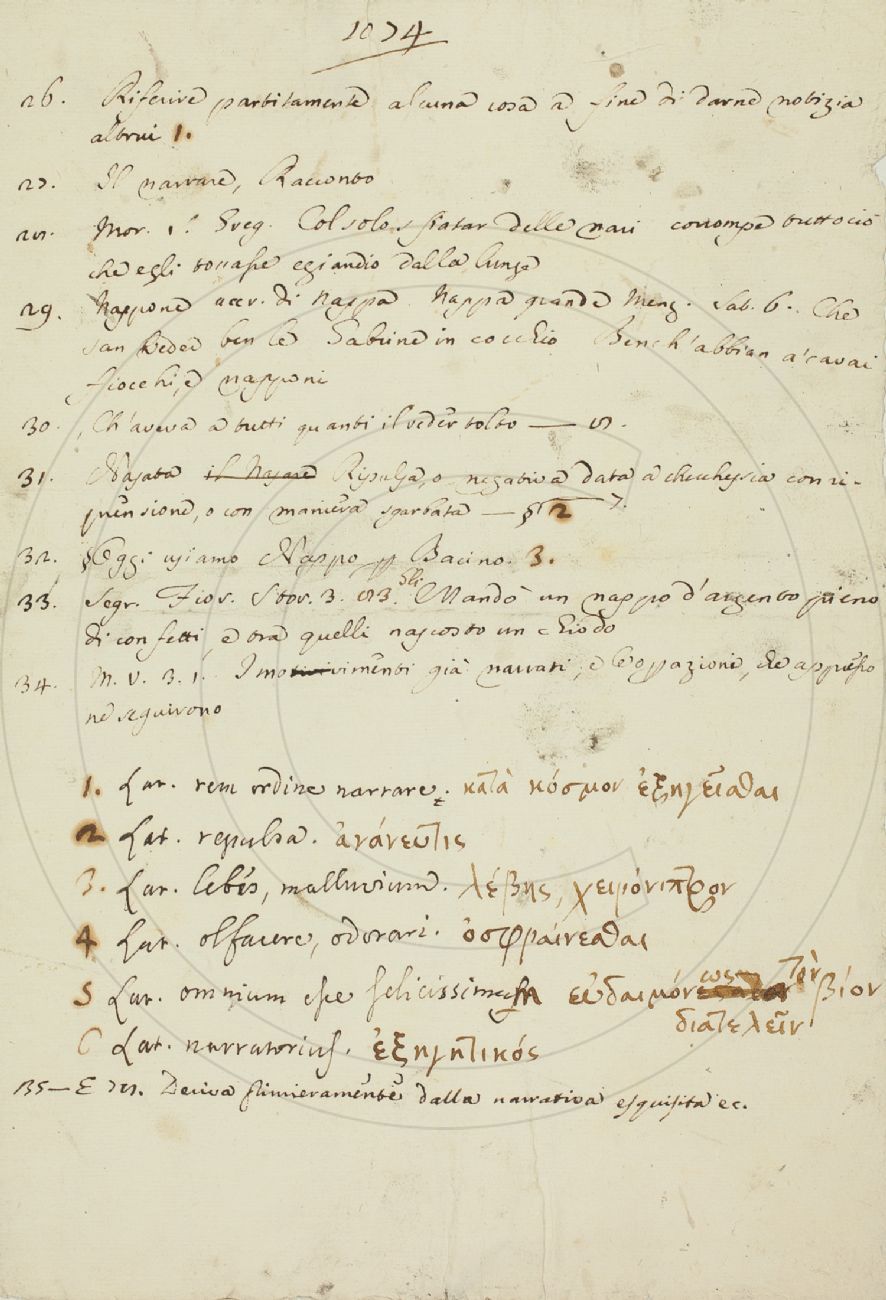 1074
26. Riferire partitamente alcuna cosa a fine di darne notizia
altrui 1.
27. Il narrare, Racconto
28. Mor. S. Greg. Col solo sfiatar delle nari corrompe tutto ciò
che egli toccasse eziandio dalla lunge
29. Nappone accr. di Nappa Nappa grande Menz. Sat. 6. Che
san veder ben le Sabine in cocchio Bench'abbian a' cavai
fiocchi, e napponi
30. Ch'aveva a tutti quanti il veder tolto — 8.
31. Nasata il Nasare Ripulsa, o negativa data a chicchessia con ri-
prensione, o con maniera sgarbata — § 2 7.
32. § Oggi usiamo Nappo pp Bacino. 3.
33. Segr. Fior. Stor. 3. 83. Mandò un nappo d'argento pieno
di confetti, e tra quelli nascosto un chiodo
34. M. V. 3. 1. I movimenti già narrati, e le oppazioni, che appresso
ne seguirono
1. Lat. rem ordine narrare. κατὰ κόσμον ἐξηγεῖσθαι
2 Lat. repulsa. ἀνάνευσις
3. Lat. lebes, malluvium. λέβης, χειρόνιπτρον
4 Lat. olfacere, odorari. ὀσφραίνεσθαι
5 Lat. omnium esse felicissimum εὐδαιμόνως τὸν βίον
διατελεῖν
6 Lat. narratorius. ἐξηγητικός
35— E 78. Deriva primieramente dalla narrativa esquisita ec.